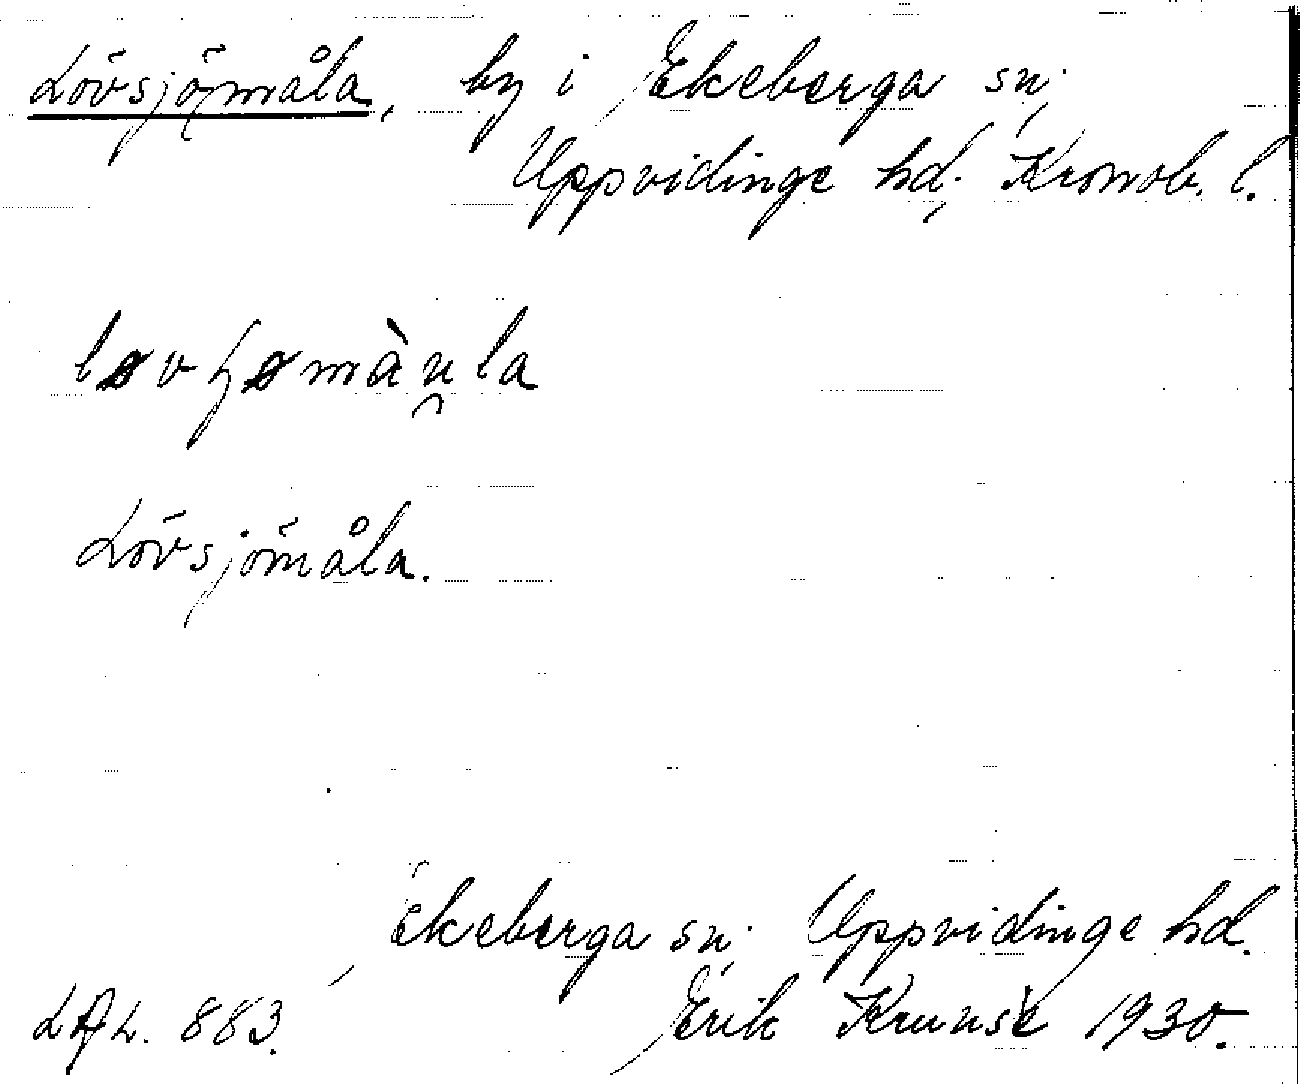 Lövsjömåla, by i Ekeberga sn;
Uppvidinge hd; Kronob. l.
Lövsjömåla.
Ekeberga sn; Uppvidinge hd.
Erik
1930.
883.